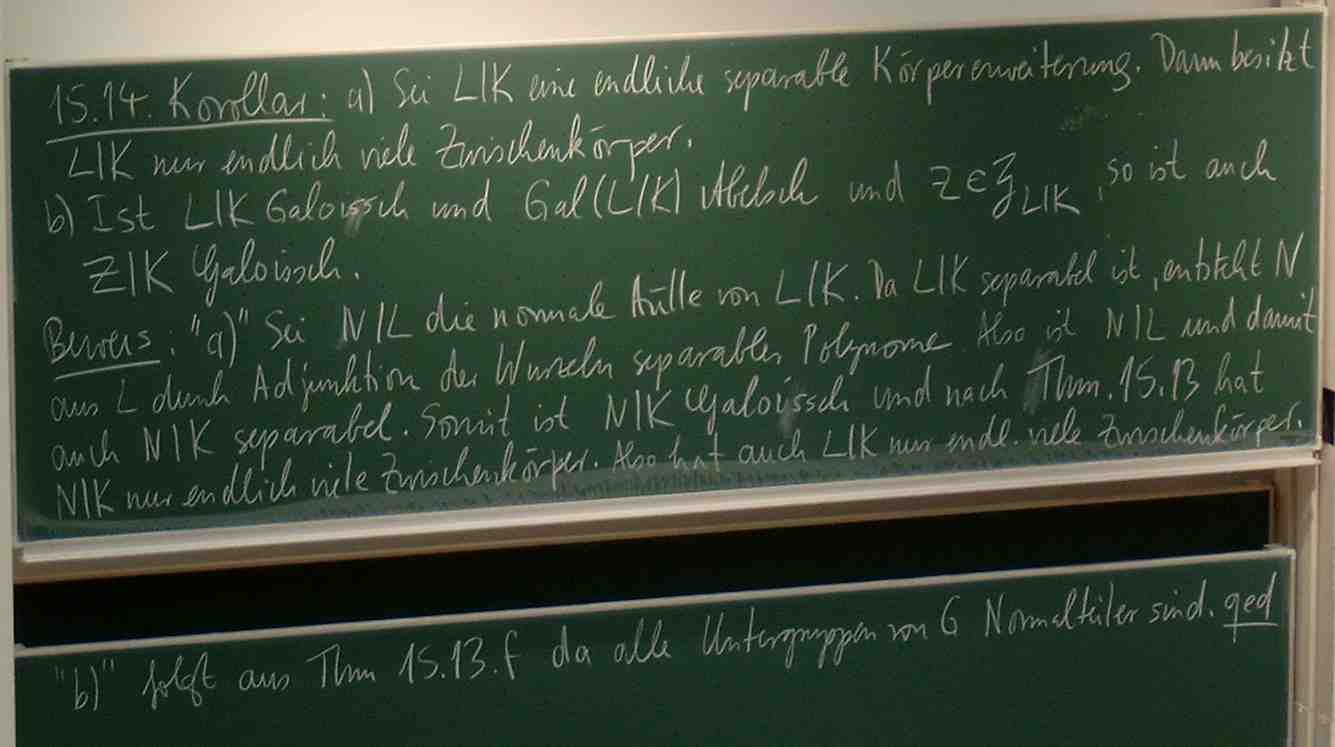 15.14. Korollar: a) Sei L|K eine endliche separable Körpererweiterung. Dann besitzt
L|K nur endlich viele Zwischenkörper.
b) Ist L|K Galoissch und Gal(L|K) Abelsch und Z∈𝔷_{L|K}, so ist auch
Z|K Galoissch.
Beweis: "a)" Sei N|L die normale Hülle von L|K. Da L|K separabel ist, entsteht N
aus L durch Adjunktion der Wurzeln separabler Polynome. Also ist N|L und damit
auch N|K separabel. Somit ist N|K Galoissch und nach Thm. 15.13 hat
N|K nur endlich viele Zwischenkörper. Also hat auch L|K nur endl. viele Zwischenkörper.
"b)" folgt aus Thm 15.13.f da alle Untergruppen von G Normalteiler sind. qed